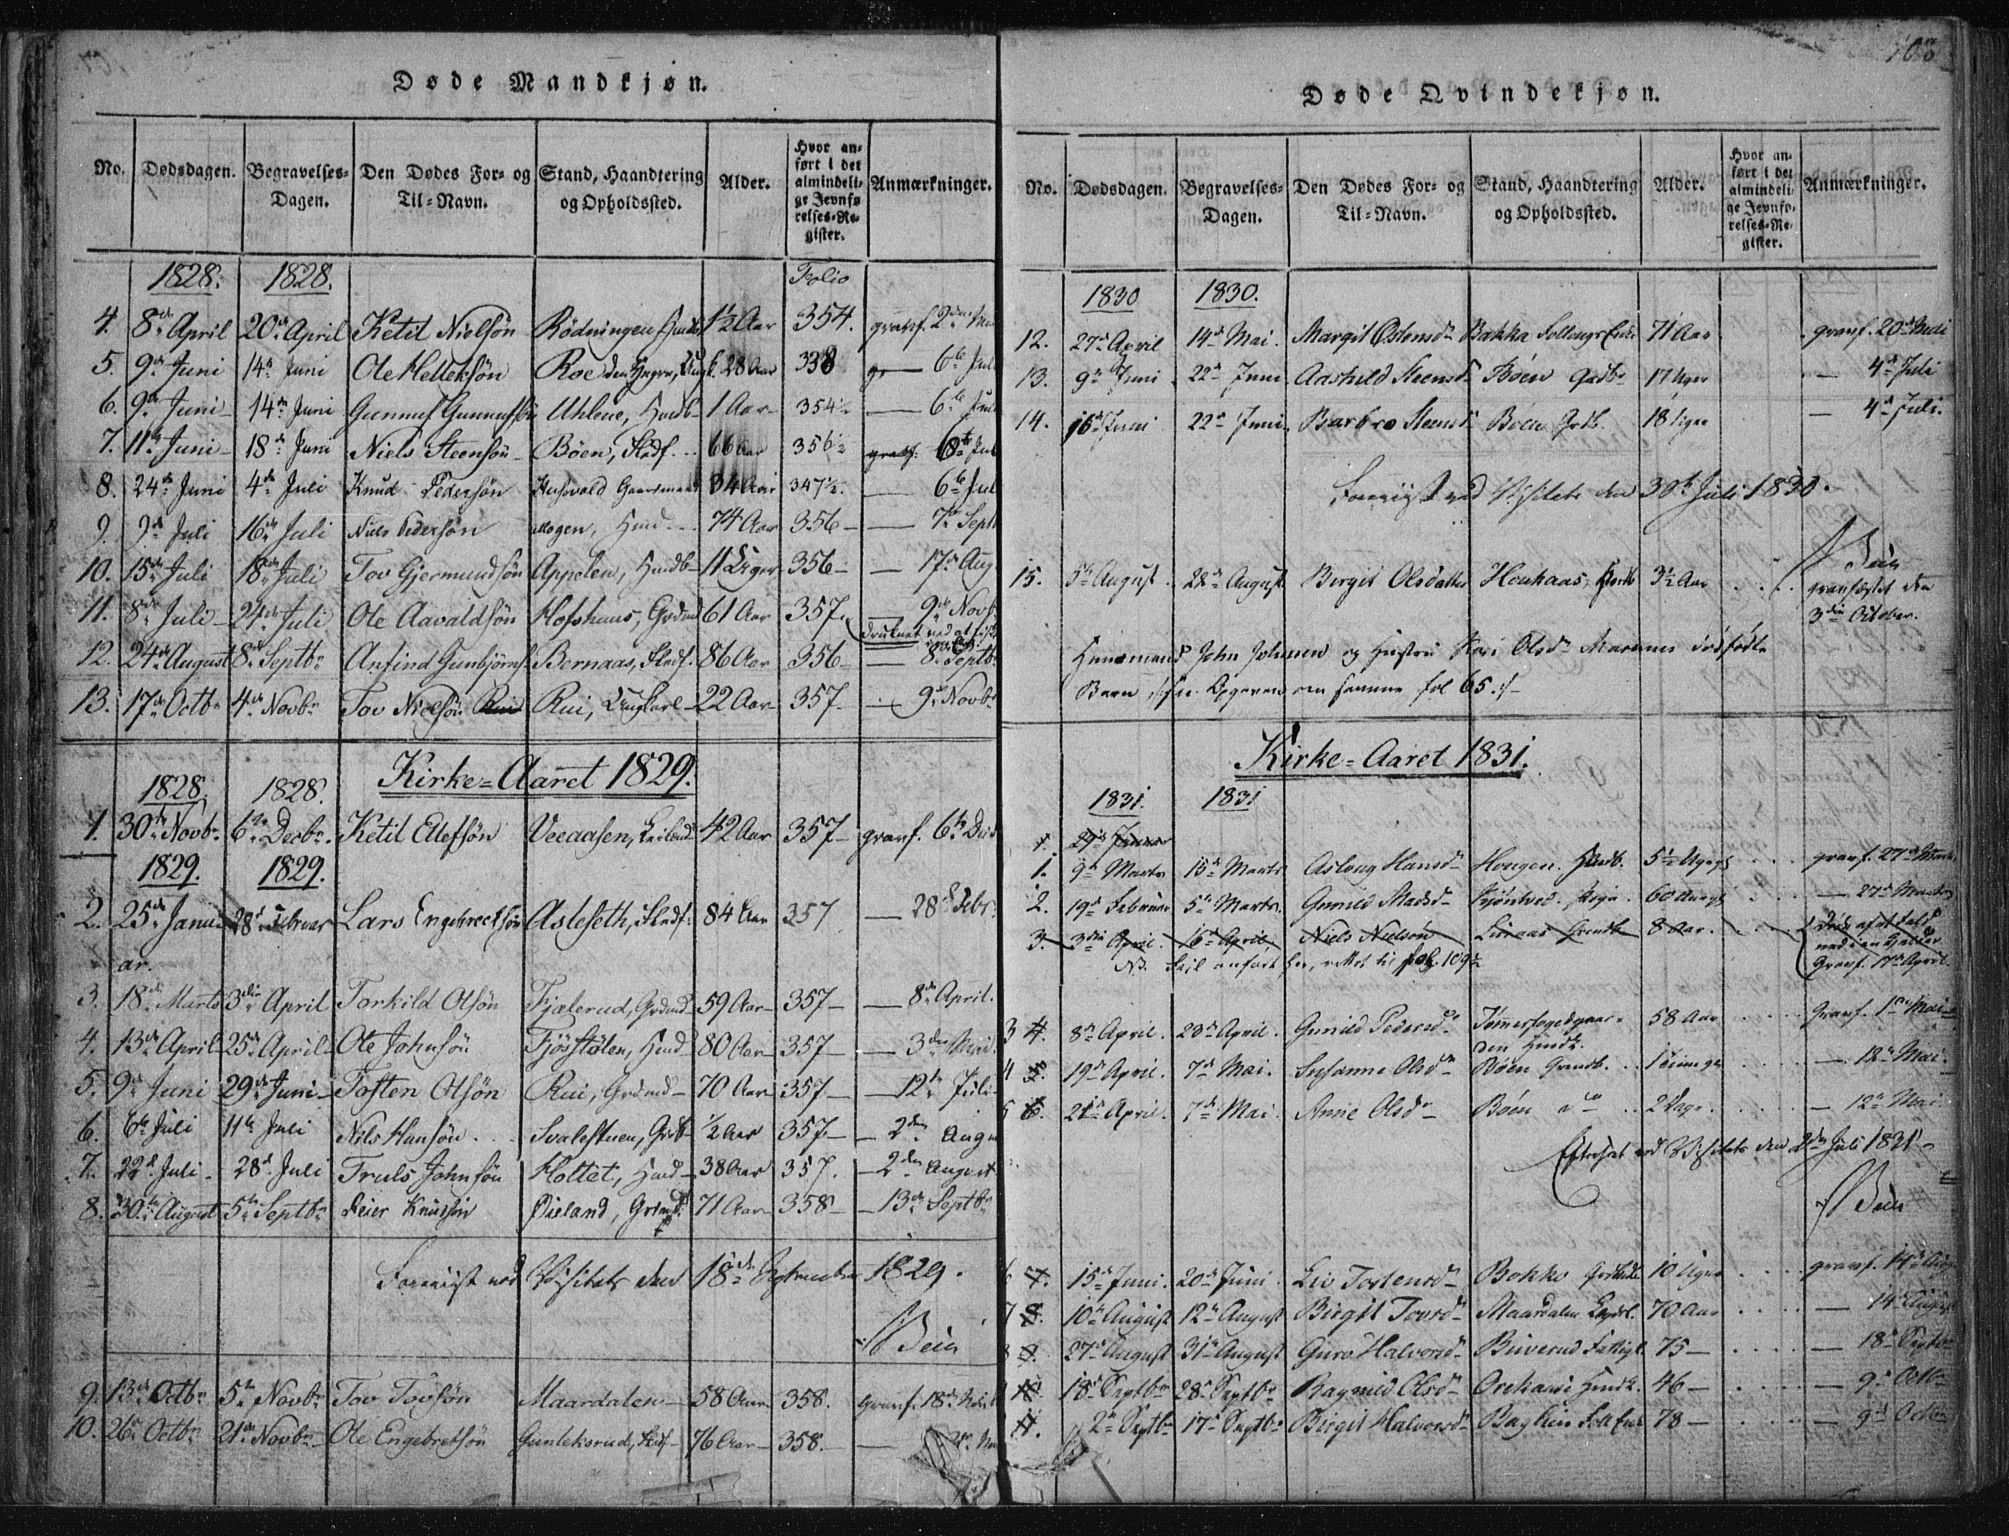 Døde Mandkjøn.
No. Dødsdagen. Begravelses-Dagen. Den Dødes For- og Til-Navn. Stand, Haandtering og Opholdssted. Alder. Hvor anført i det almindelige Jevnførelses-Register. Anmærkninger.
1828. 1828. Folio
4. 8de April 20de April Ketil Nielsøn Rødningen 1½ Aar 354. gravf. 2den
5. 9de Juni 14de Juni Ole Helleksøn Roe 28 Aar 338 6te Juli
6. 9de Juni 14de Juni Gunnuf Gunnufsøn Uhlene, Huusb. 1 Aar 354½ — 6te Juli
7. 11te Juni 18de Juni Niels Steensøn Bøen, Ledf. 66 Aar 356½ gravf. 6te Jul
8. 24de Juni 4de Juli Knud Pedersøn Gaardmand 34 Aar 347½. — 6te Jul
9. 9de Juli 16de Juli Niels Pedersøn Mogen, 74 Aar 356 — 7de Sept
10. 15de Juli 18de Juli Tov Gjermundsøn Appelen, Huusb. 11 Uger 356 — 17de Aug
11. 8de Juli 24de Juli Ole Aavaldsøn Hofshuus, Grdmd 61 Aar 357. — 9de Novb
druknet ved at
12. 24de August 8de Septbr Anfind Gunbjørns. Bernaas, Ledf. 86 Aar 356 — 8de Septbr
13. 17de Octbr 4de Novbr Tov Nielsøn Rui Rui, Ungkarl 22 Aar 357. — 9de Novbr
Kirke=Aaret 1829.
1828. 1828.
1. 30te Novbr. 6te Decbr. Ketil Ellefsøn Veeaasen, 42 Aar 357 gravf. 6te Decb
1829. 1829.
2. 25de Janu- 28de Februar Lars Engebrecktsøn Asleseth, Ledf. 84 Aar 357 — 28de Febr.
ar.
3. 18de Marts 3die April Torkild Olsøn Fjælerud, Grdmd 59 Aar 357 — 8de April.
4. 13de April 25de April Ole Johnsøn Fjøsstølen, Huusmd 80 Aar 357 — 3den Mai.
5. 9de Juni 29de Juni Tosten Olsøn Rui, Grdmd 70 Aar 357 — 12te Juli
6. 6te Juli 11te Juli Nils Hansøn Svalestuen, Grdb. ½ Aar 357 — 2den Augu
7. 22de Juli 28de Juli Truls Johnsøn Holtet, Huusmd 38 Aar 357. — 2den August
8. 30te August 5te Septbr Peier Knudsøn Øieland, Grdmd. 71 Aar 358 — 13de Septbr
Foreviist ved Visitats den 18de September 1829.
9. 13de Octbr 5te Novbr Tov Tovsøn Maardalen 58 Aar 358. gravf. 18de
10. 26de Octbr 21de Novbr Ole Engebretsøn Gunleksrud, Ledf. 76 Aar 358.
Døde Qvindekjøn.
No. Dødsdagen. Begravelses-Dagen. Den Dødes For- og Til-Navn. Stand, Haandtering og Opholdssted. Alder. Hvor anført i det almindelige Jevnførelses-Register. Anmærkninger.
1830 1830.
12. 27de April 14de Mai. Margit Østensdr Bakka 71 Aar gravf. 20de
13. 9de Juni 22de Juni Aashild Steensdr Bøen Grdbr 17 Uger — 4de Juli
14. 16de Juni 22de Juni Barbro Steensdr Bøen Grdb. 18 Uger — 4de Juli.
Foreviist ved Visitats den 30te Juli 1830.
15. 5te August 22de August Birgit Olsdatter Houkaas 3½ Aar gravfæstet den
3die October.
Huusmand John Johnsen og Hustru Kari Olsdr Marenes dødfødte
Barn, Opgaven om samme fol 65.
Kirke=Aaret 1831.
1831. 1831
1. 29de Januar
1. 9de Marts 15de Marts Aslaug Hansdr Hougen. Huusb. gravf. 27de Marts
2. 19de Februar 5te Marts Gunild Madsdr 60 Aar — 27de Marts
3. 3die April. 16de April Niels Nielsøn Luraas Grdb. 8 Aar. Døde af at falde
ned i en Kjelder
NB. Feil anført her, rettet til pag. 109½ Gravf. 17de April.
3 4. 8de April. 20de April. Gunild Pedersdr Tømerfogedgaar- 58 Aar Gravf. 1ste Mai
den
4 5. 19de April. 7de Mai. Susanne Olsdr Bøen Grdb. — 12te Mai.
5 6. 21de April. 7de Mai. Anne Olsdr Bøen do 2 Dage. — 12te Mai.
Efterseet ved Visitats den 2den Juli 1831
6 7. 15de Juni. 20de Juni Liv Tostensdr Bakke 10 Uger gravf. 14de Aug
7 8. 10de August 12te August Birgit Tovsdr Maardalen 70 Aar — 14de August
8 9. 27de August 31te August Guro Halvorsdr Biverud Fattigl. 75 — 18de Septbr
10. 18de Septbr 28de Septbr Ragnild Olsdr 46 — 9de Octbr
11. 2den Septbr 17de Septbr Birgit Halvorsdr 78 — 9de Octbr